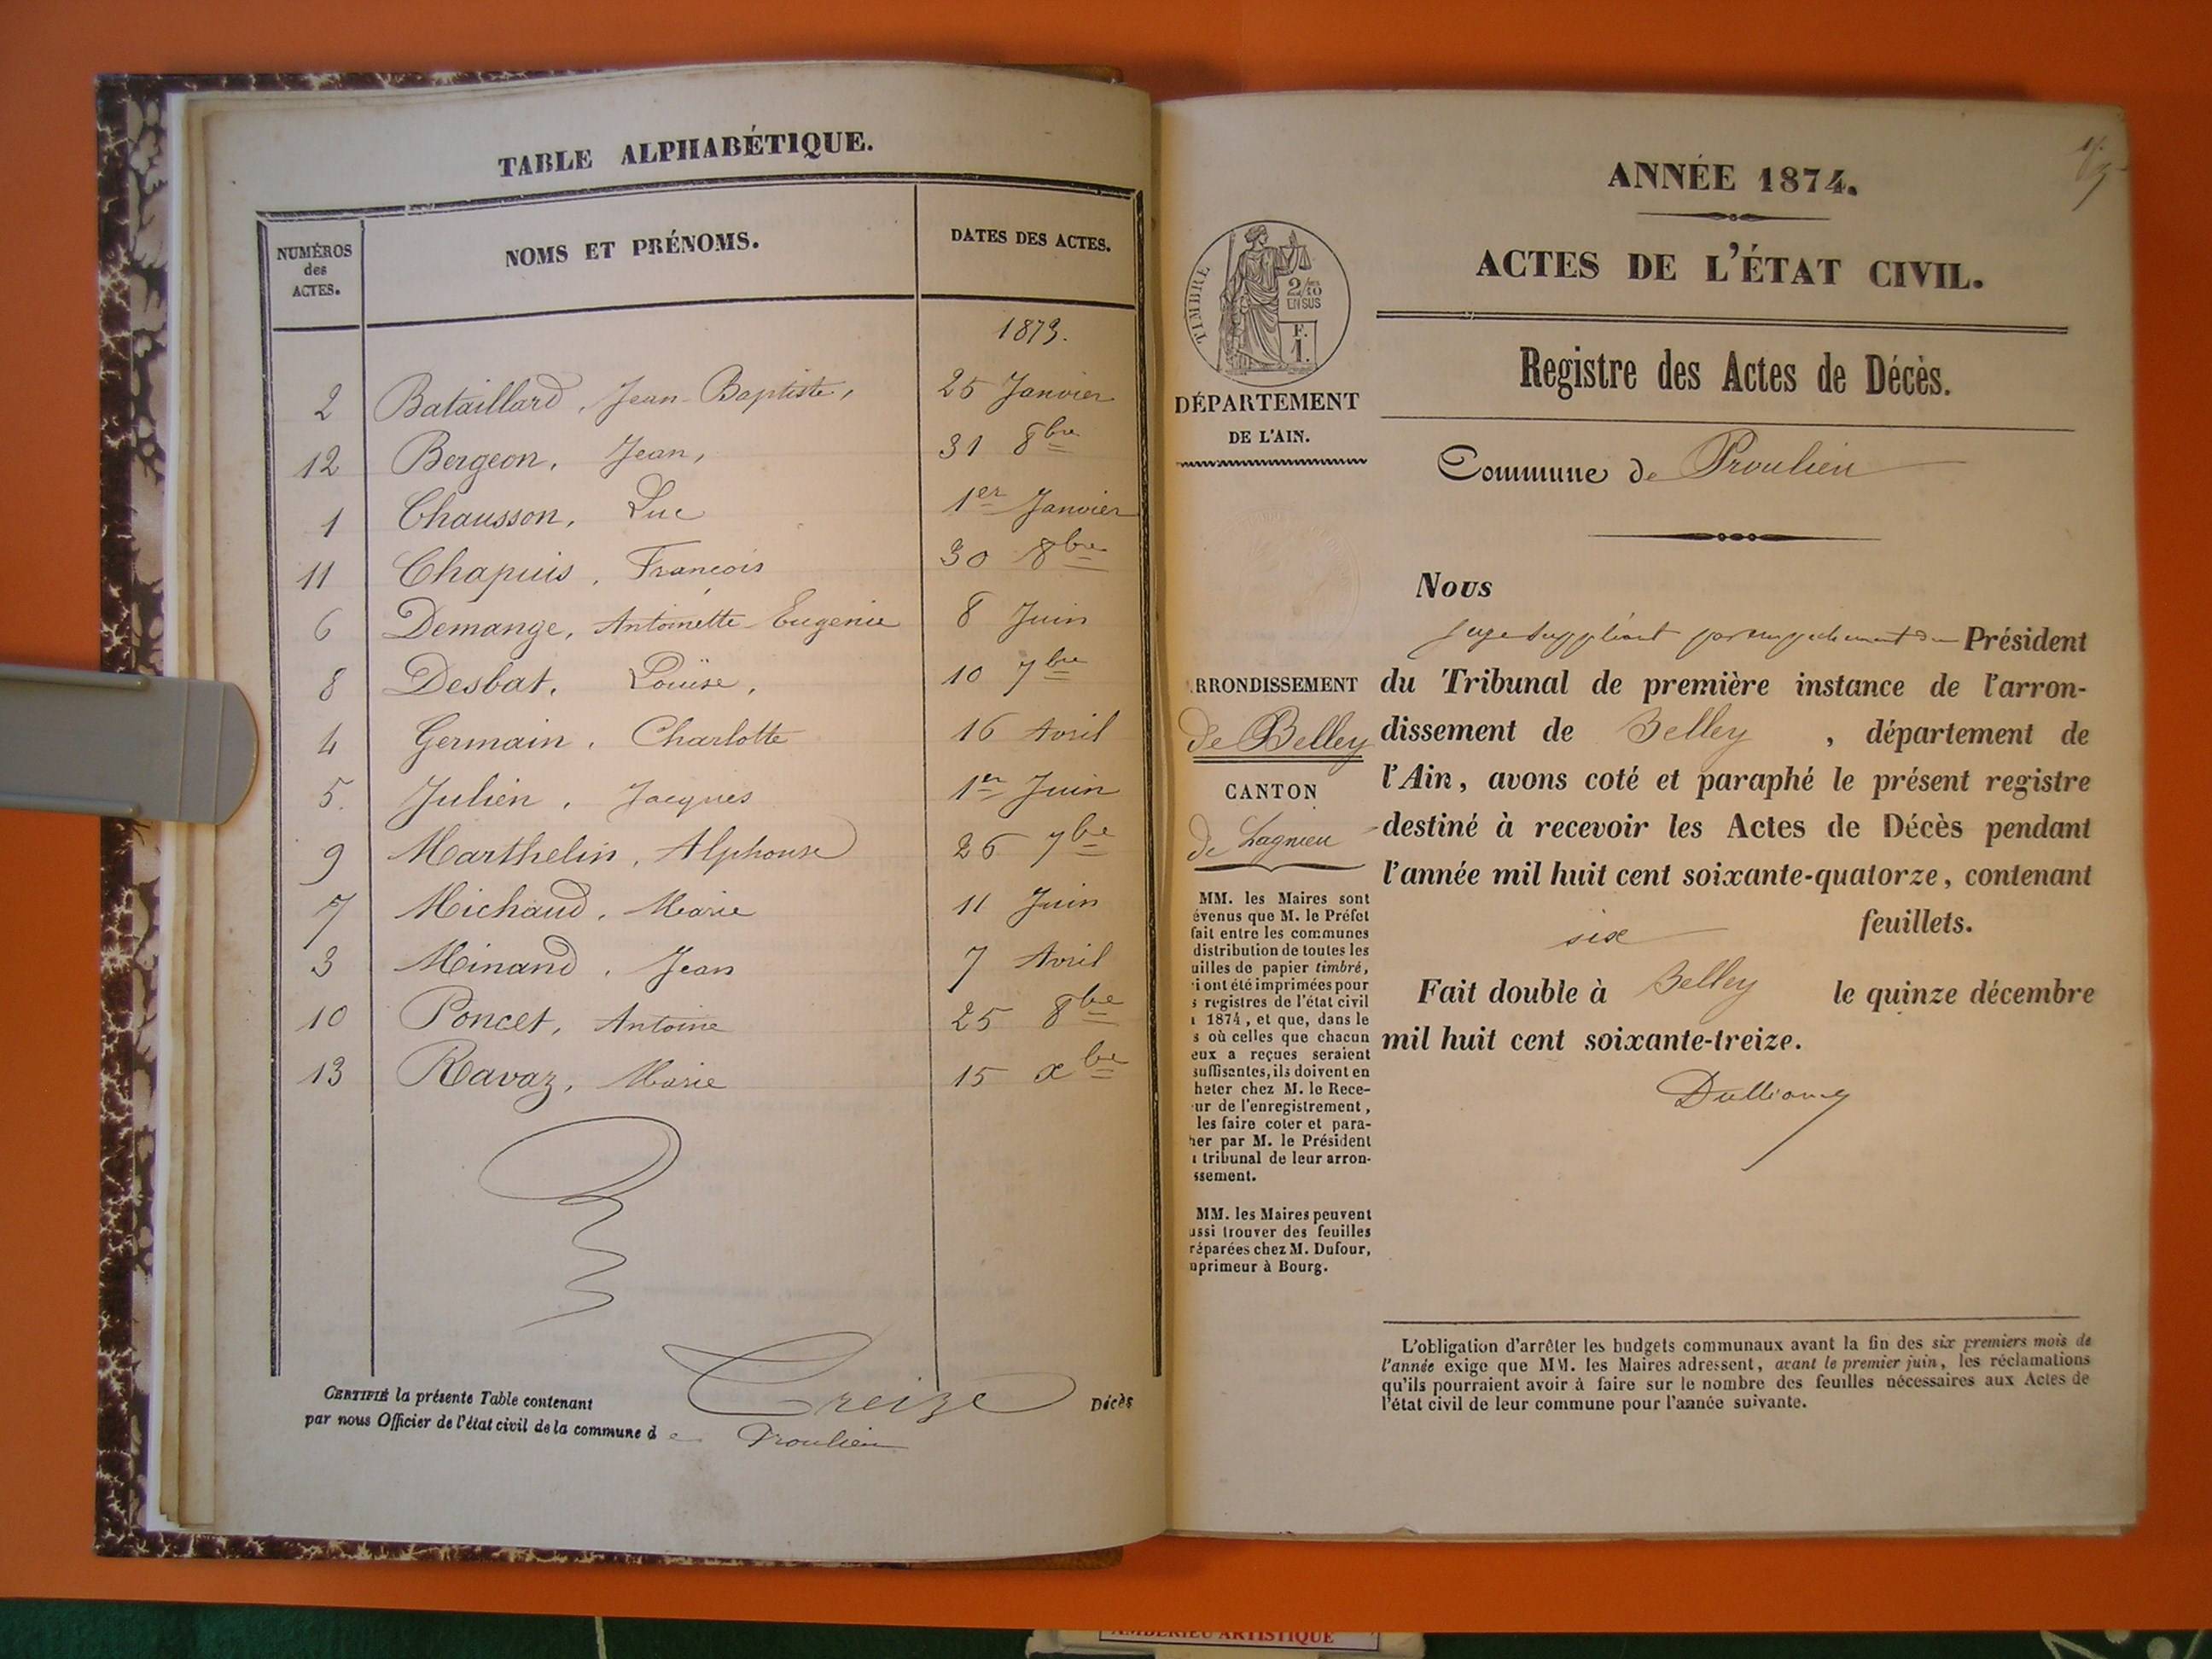 TABLE ALPHABÉTIQUE.
NUMÉROS des ACTES. NOMS ET PRÉNOMS. DATES DES ACTES.
1873.
2 Bataillard, Jean-Baptiste, 25 Janvier
12 Bergeon, Jean, 31 8bre
1 Chausson, Luc 1er Janvier
11 Chapuis, François 30 8bre
6 Demange, Antoinette Eugenie 8 Juin
8 Desbat, Louise, 10 7bre
4 Germain, Charlotte 16 Avril
5. Julien, Jacques 1er Juin
9 Marthelin, Alphonse 26 7bre
7 Michaud, Marie 11 Juin
3 Minand, Jean 7 Avril
10 Poncet, Antoine 25 8bre
13 Ravaz, Marie 15 xbre
CERTIFIÉ la présente Table contenant Treize Décès
par nous Officier de l'état civil de la commune d e Proulieu
ANNÉE 1874.
ACTES DE L'ÉTAT CIVIL.
TIMBRE
2/10
EN SUS
F.
1.
DÉPARTEMENT
DE L'AIN.
RRONDISSEMENT
de Belley
CANTON
de Lagnieu
MM. les Maires sont
évenus que M. le Préfet
fait entre les communes
distribution de toutes les
uilles de papier timbré,
i ont été imprimées pour
s registres de l'état civil
1874, et que, dans le
s où celles que chacun
eux a reçues seraient
suffisantes, ils doivent en
heter chez M. le Rece-
ur de l'enregistrement,
les faire coter et para-
her par M. le Président
tribunal de leur arron-
ssement.
MM. les Maires peuvent
ussi trouver des feuilles
réparées chez M. Dufour,
mprimeur à Bourg.
Registre des Actes de Décès.
Commune de Proulieu
Nous
juge suppléant par empêchement du Président
du Tribunal de première instance de l'arron-
dissement de Belley, département de
l'Ain, avons coté et paraphé le présent registre
destiné à recevoir les Actes de Décès pendant
l'année mil huit cent soixante-quatorze, contenant
six feuillets.
Fait double à Belley le quinze décembre
mil huit cent soixante-treize.
L'obligation d'arrêter les budgets communaux avant la fin des six premiers mois de
l'année exige que MM. les Maires adressent, avant le premier juin, les réclamations
qu'ils pourraient avoir à faire sur le nombre des feuilles nécessaires aux Actes de
l'état civil de leur commune pour l'année suivante.
AMBERIEU ARTISTIQUE